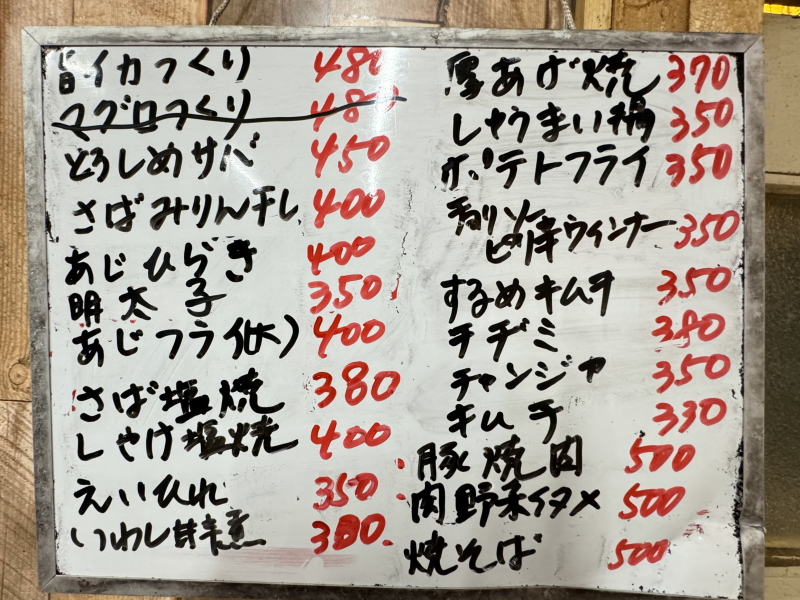 旨イカつくり 480
マグロつくり 480
とろしめサバ 450
さばみりん干し 400
あじひらき 400
明太子 350
あじフライ(大) 400
さば塩焼 380
しゃけ塩焼 400
えいひれ 350
いわし甘煮 300
厚あげ焼 370
しゅうまい 350
ポテトフライ 350
チョリソー
ピリ辛ウィンナー 350
するめキムチ 350
チヂミ 380
チャンジャ 350
キムチ 330
豚焼肉 500
肉野菜イタメ 500
焼そば 500